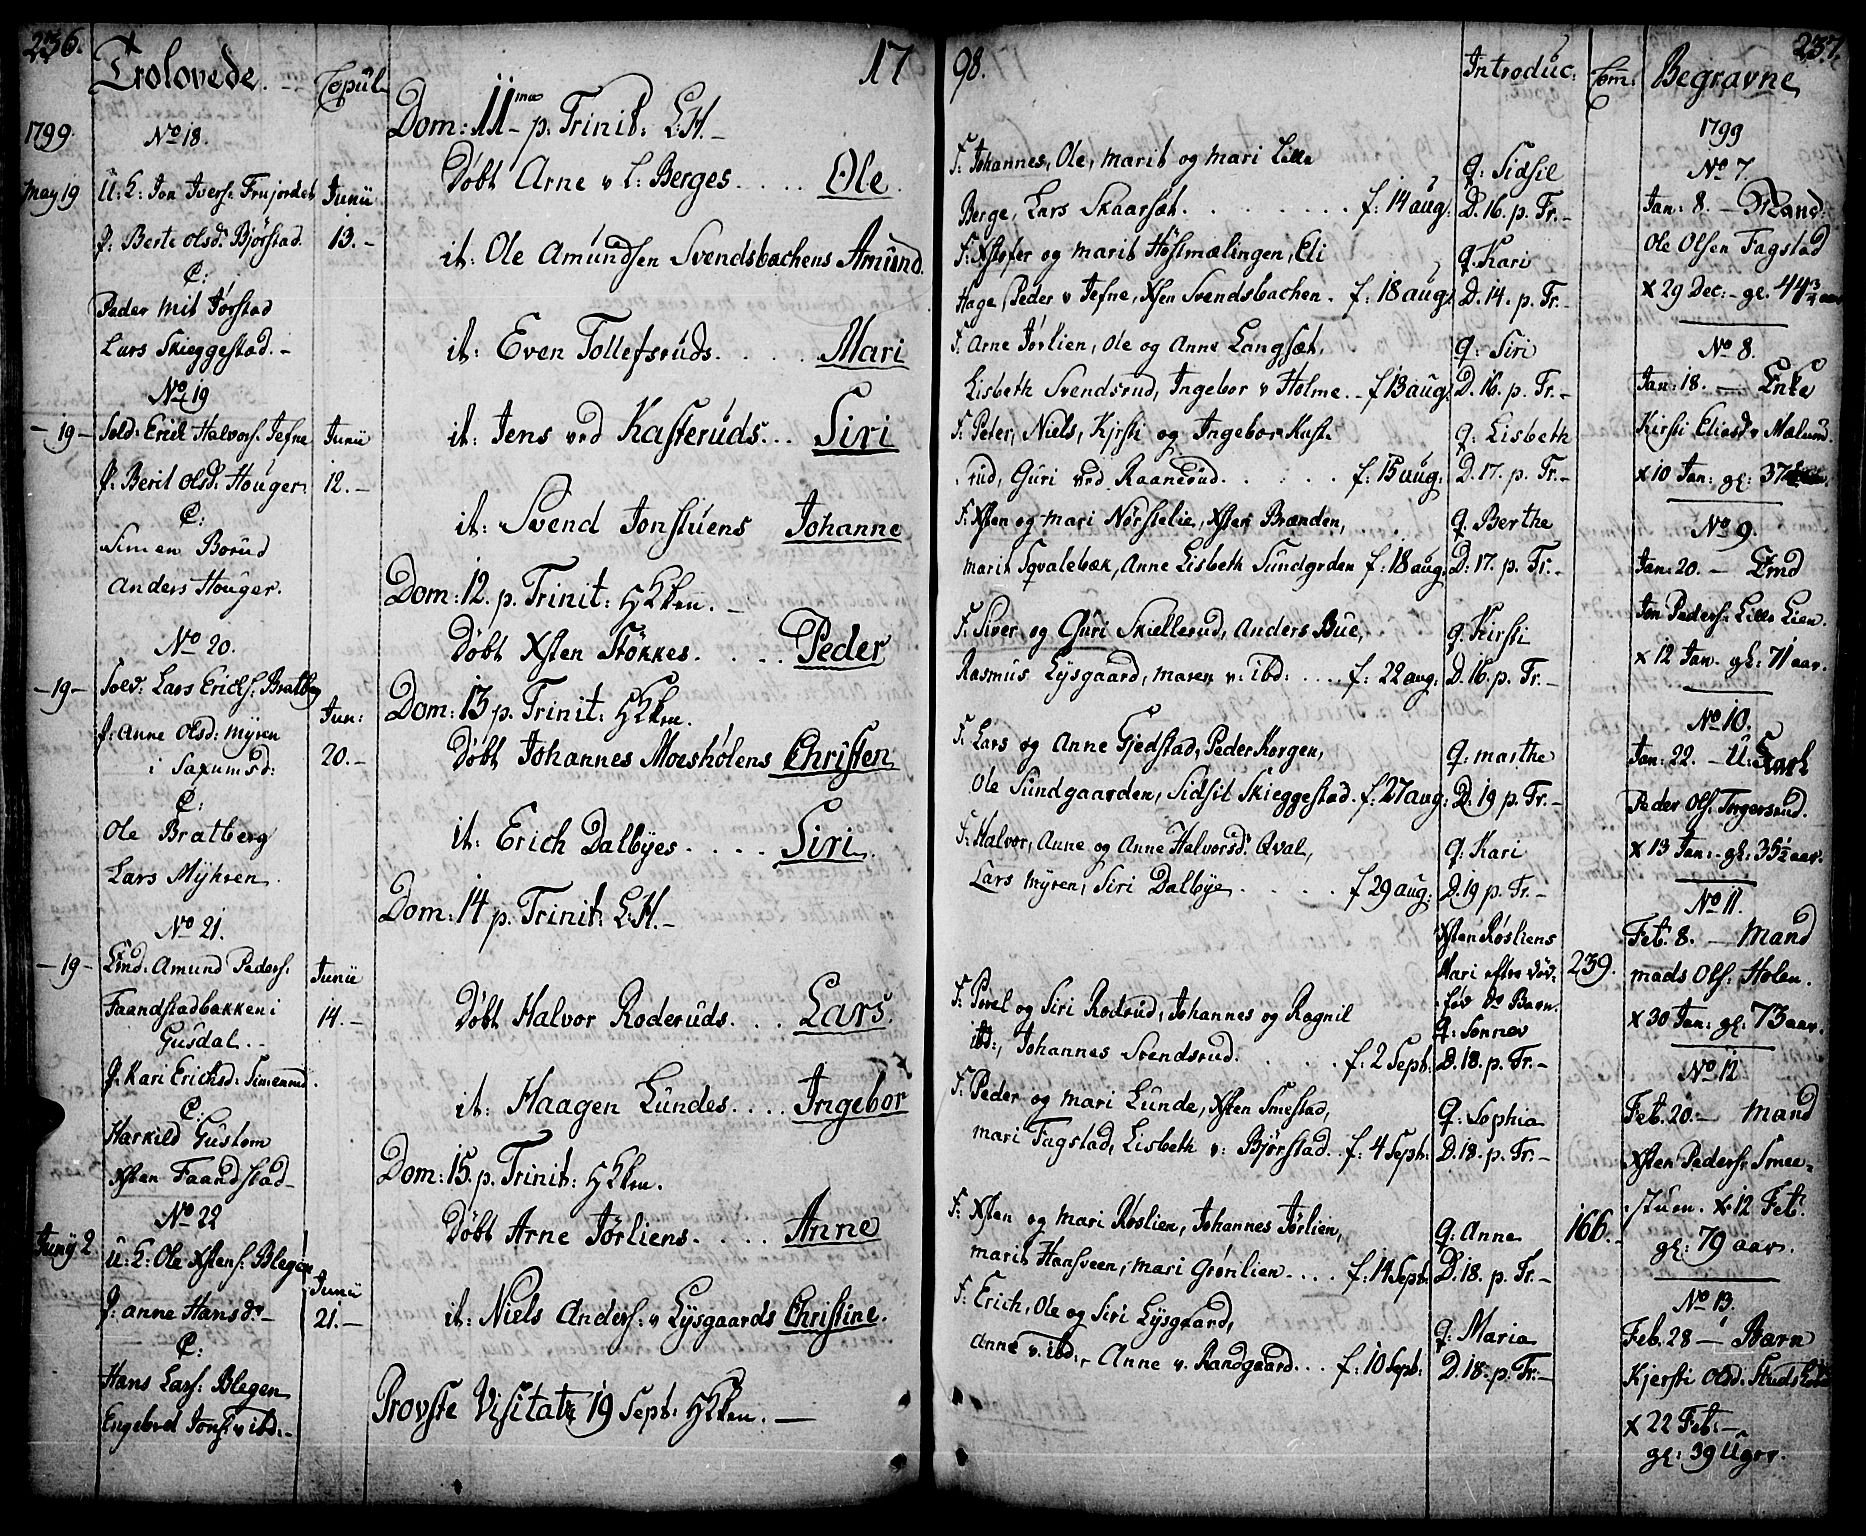 236.
Trolovede.
Copul.
1799.
No 18.
May 19
U: K: Jon Ivers: Frujordet
Junii
P. Berte Olsd: Bjørstad
13.-
C:
Peder Mit Jørstad
Lars Skieggestad.-
No 19
-19-
Sold: Erich Halvors: Jefne
Junii
P. Berit Olsd: Houger
12.-
C:
Simen Borud
Anders Houger.
No 20.
-19-
Sold: Lars Erichs: Bratberg
Jun:
P: Anne Olsd: Myren
i Saxumsd:
20.-
C:
Ole Bratberg
Lars Myhren
No 21.
-19-
Amund Peders:
Junii
Faandstadbakken i
Gusdal.
14.-
P. Kari Erichsd: Simenrud.
C:
Harkild Gustom
Xsten Faandstad
No 22
Junij 2
U: K: Ole Xstens: Blegen
Junii
P: Anne Hansd:-
21.-
C:
Hans Lars: Blegen
Engebret Jons: v ibd:-
17
Dom: 11ma p. Trinit: L:H.-
Døbt Arne v L: Berges..... Ole.
it: Ole Amundsen Svendsbachens Amund.
it: Even Tollefsruds..... Mari
it: Jens vrd Kasteruds... Siri
it: Svend Jonstuens Johanne
Dom: 12. p. Trinit: HKken.-
Døbt Xsten Stokkes..... Peder
Dom: 13 p. Trinit: HKken.
Døbt Johannes Moesholens Christen
it: Erich Dalbyes..... Siri.
Dom: 14 p. Trinit: L:H.-
Døbt Halvor Roderuds.... Lars.
it: Haagen Lundes.... Ingebor
Dom: 15. p. Trinit: HKken.
Døbt Arne Jørliens..... Anne
it: Niels Anders: v Lysgaards Christine.
Provste Visitatz 19 Sept: HKken.-
98.
Introduc:
Com:
Begravne
237.
F: Johannes, Ole, Marit og Mari Lille
Berge, Lars Skaarsæt........ f: 14 aug:
q: Sidsil
D. 16. p. Tr.-
F: Xstofer og Marit Høstmælingen, Eli
Hage, Peder v Jefne, Xsten Svendsbachen. f: 18 aug:
q. Kari
D. 14. p. Tr.-
F: Arne Jørlien, Ole og Anne Langsæt,
Lisbeth Svendsrud, Ingebor v Holme.. f 13 aug:
q: Siri
D. 16. p. Tr.-
F: Peter, Niels, Kjrsti og Ingebor Kaste
rud, Guri vrd Raanerud...... f: 15 aug:
q: Lisbeth
D. 17. p. Tr.-
F: Xsten og Mari Nørstelie, Xsten Brænden,
Marit Sqvalebæk, Anne Lisbeth Sundgrden f: 18 aug:
q. Berthe
D: 17. p. Tr.-
F: Siver og Guri Skiellerud, Anders Bue,
Rasmus Lysgaard, Maren v: ibd:.... f: 22 aug:
q: Kirsti
D. 16. p. Tr.-
F: Lars og Anne Gjedstad, Peder Korgen,
Ole Sundgaarden, Sidsil Skieggestad. f: 27 aug:
q: Marthe
D: 19 p. Tr.-
F: Halvor, Anne og Anne Halvorsd: Qval,
Lars Myren, Siri Dalbye...... f 29 aug:
q: Kari
D. 19 p. Tr.-
Xsten Røsliens
Mari efter død-
fød Barn.
239.
F: Povel og Siri Rodrud, Johannes og Ragnil
ibd:, Johannes Svendsrud...... f: 2 Sept:
q: Sonnev
D. 18. p. Tr.-
F: Peder og Mari Lunde, Xsten Smestad,
Mari Fagstad, Lisbeth v: Bjørstad.. f: 4 Sept:
q: Sophia
D. 18. p. Tr.-
F: Xsten og Mari Røslien, Johannes Jørlien,
Marit Hansveen, Mari Grønlien.... f: 14 Sept:
q: Anne
D. 18. p. Tr.-
166.
F: Erich, Ole og Siri Lysgaard,
Anne v. ibd:, Anne v. Randgaard... f: 10 Sept:
q: Maria
D. 18. p. Tr.-
1799
No 7.
Jan: 8. - Mand:
Ole Olsen Fagstad
x 29 Dec:- gl. 44 3/4 aar
No 8.
Jan: 18. - Enke
Kirsti Eliasd v Mælum.
x 10 Jan: gl: 37
No 9.
Jan: 20. -
Jon Peders: Lille Lien.
x 12 Jan. gl: 71 aar.
No 10.
Jan: 22. - U: Karl
Peder Ols: Torgersrud.
x 13 Jan:- gl: 35 1/2 aar.
No 11.
Feb. 8. - Mand
Mads Ols: Holen.
x 30 Jan: gl: 73 aar.
No 12
Feb. 20. - Mand
Xsten Peders: Smee-
stuen. x 12 Feb:
gl: 79 aar.
No 13.
Feb. 28 - Barn
Kjersti Olsd:
x 22 Feb:-
gl: 39 Uger.